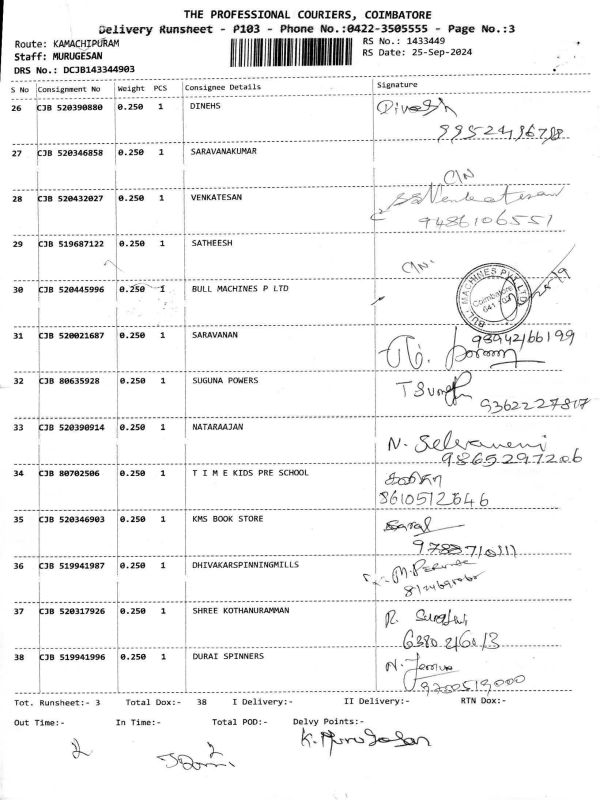 THE PROFESSIONAL COURIERS, COIMBATORE
Delivery Runsheet - P103 - Phone No.:0422-3505555 - Page No.:3
Route: KAMACHIPURAM RS No.: 1433449
Staff: MURUGESAN RS Date: 25-Sep-2024
DRS No.: DCJB143344903
S No Consignment No Weight PCS Consignee Details Signature
26 CJB 520390880 0.250 1 DINEHS Dinesh
9952496788
27 CJB 520346858 0.250 1 SARAVANAKUMAR
C/N
28 CJB 520432027 0.250 1 VENKATESAN Venkatesan
9486106551
29 CJB 519687122 0.250 1 SATHEESH
C/N
30 CJB 520445996 0.250 1 BULL MACHINES P LTD BULL MACHINES PVT. LTD. Coimbatore
31 CJB 520021687 0.250 1 SARAVANAN
32 CJB 80635928 0.250 1 SUGUNA POWERS
9362227817
33 CJB 520390914 0.250 1 NATARAAJAN N. Selvameni
9865297206
34 CJB 80702506 0.250 1 T I M E KIDS PRE SCHOOL
8610512646
35 CJB 520346903 0.250 1 KMS BOOK STORE
36 CJB 519941987 0.250 1 DHIVAKARSPINNINGMILLS
37 CJB 520317926 0.250 1 SHREE KOTHANURAMMAN
38 CJB 519941996 0.250 1 DURAI SPINNERS
9200519000
Tot. Runsheet:- 3 Total Dox:- 38 I Delivery:- II Delivery:- RTN Dox:-
Out Time:- In Time:- Total POD:- Delvy Points:-
K. Murugesan